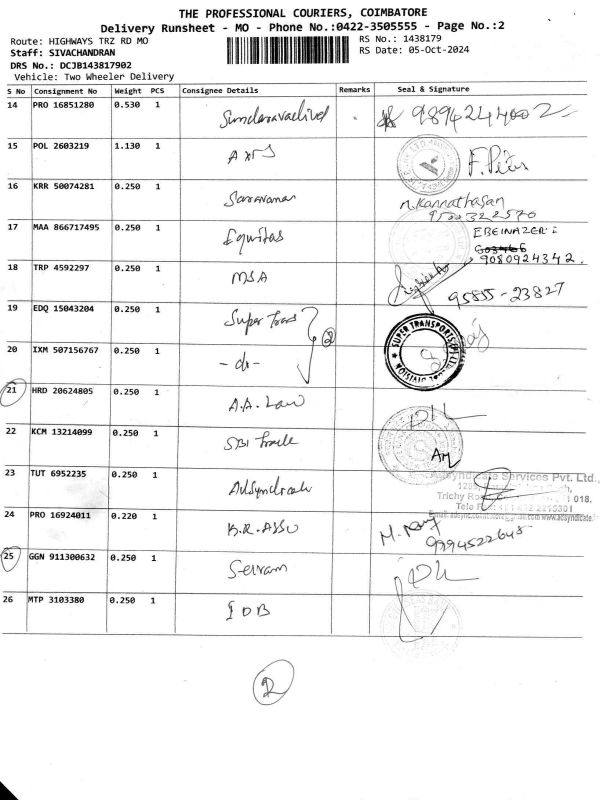 THE PROFESSIONAL COURIERS, COIMBATORE
Delivery Runsheet - MO - Phone No.:0422-3505555 - Page No.:2
Route: HIGHWAYS TRZ RD MO RS No.: 1438179
Staff: SIVACHANDRAN RS Date: 05-Oct-2024
DRS No.: DCJB143817902
Vehicle: Two Wheeler Delivery
S No Consignment No Weight PCS Consignee Details Remarks Seal & Signature
14 PRO 16851280 0.530 1 9894244002
15 POL 2603219 1.130 1 AXIS
16 KRR 50074281 0.250 1 Saravanan
M. Kannathasan
9500322570
17 MAA 866717495 0.250 1 Equitas
EBEINAZER
9080924342.
18 TRP 4592297 0.250 1 MSA
95855-23827
19 EDQ 15043204 0.250 1 Super Trans
SUPER TRANSPORTS (P) LTD
DIVISION
2
20 IXM 507156767 0.250 1 -do-
21 HRD 20624805 0.250 1 A.A. Law
22 KCM 13214099 0.250 1 SBI Trade
23 TUT 6952235 0.250 1 Adsyndicate
Adsyndicate Services Pvt. Ltd.,
Trichy Road 018.
24 PRO 16924011 0.220 1 K.R. ASSO
9994522645
25 GGN 911300632 0.250 1
26 MTP 3103380 0.250 1 IDB
2